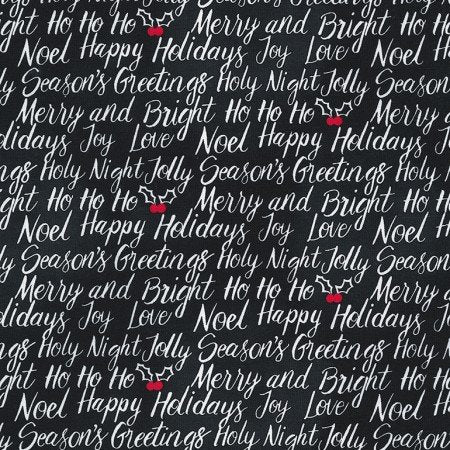 Merry and
ght Ho Ho Ho Merry and Bright
Noel Happy Holidays Joy Love
Season's Greetings Holy Night Jolly Season
Merry and Bright Ho Ho Ho Merry
lidays Joy Love Noel Happy Holidays
ngs Holy Night Jolly Season's Greetings Holy
ght Ho Ho Ho Merry and Bright Ho
Noel Happy Holidays Joy Love Noel
Season's Greetings Holy Night Jolly Season
Merry and Bright Ho Ho Ho Merry
lidays Joy Love Noel Happy Holidays
ngs Holy Night Jolly Season's Greetings Holy
ght Ho Ho Ho Merry and Bright Ho
Noel Happy Holidays Joy Love Noel
Season's Greetings Holy Night Jolly Season